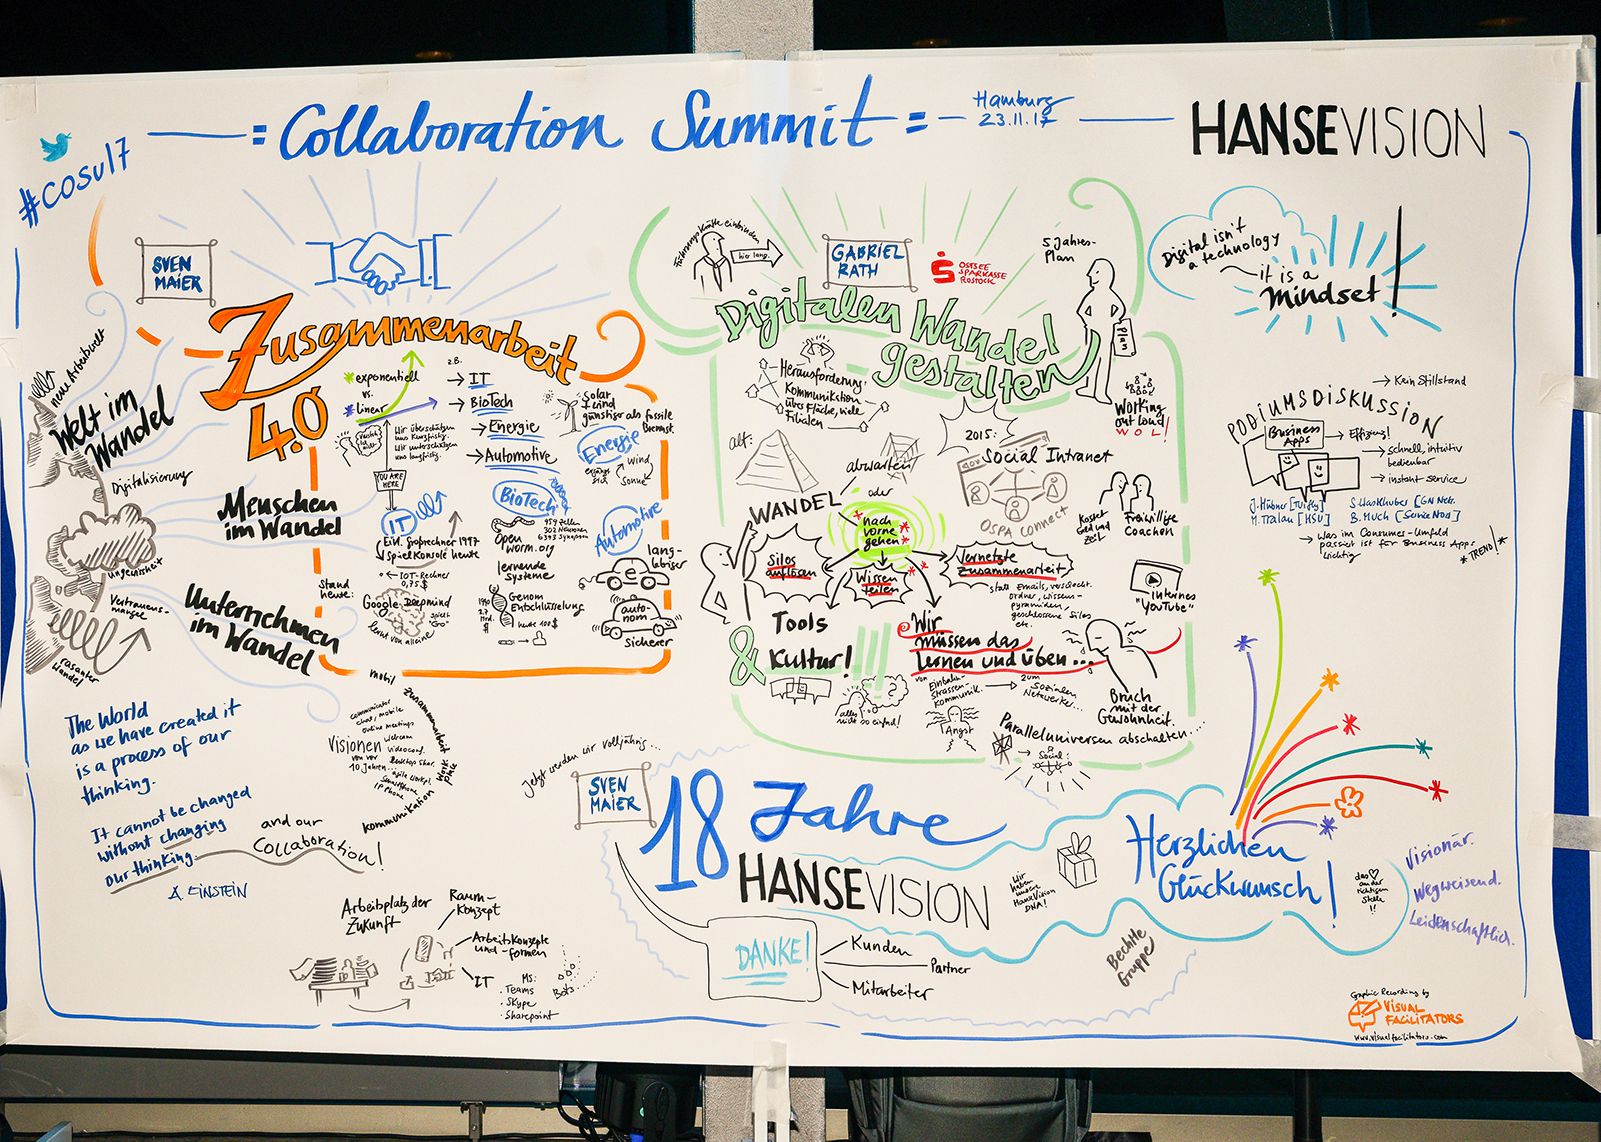 #COSU17
= Collaboration Summit =
Hamburg
23.11.17
HANSEVISION
SVEN
MAIER
Zusammenarbeit
4.0
neue Arbeitswelt
Welt im
Wandel
Digitalisierung
Menschen
im Wandel
Ungewissheit
Vertrauens-
mangel
Unternehmen
im Wandel
rasanter
Wandel
* exponentiell
vs.
* Linear
Wir überschätzen
uns kurzfristig.
Wir unterschätzen
uns langfristig.
YOU ARE
HERE
z.B.
→ IT
→ BioTech
→ Energie
→ Automotive
Solar
& Wind
günstiger als fossile
Brennst.
Energie
Wind
Sonne
IT
Ein Großrechner 1997
Spielkonsole heute
IOT-Rechner
0,75 $
Stand
heute:
Google Deepmind
spielt
"Go"
lernt von alleine
BioTech
959 Zellen
302 Neuronen
6393 Synapsen
Open
worm.org
lernende
Systeme
Genom
Entschlüsselung
1990
2,7
Mrd.
$
heute 100 $
Automotive
lang-
lebiger
auto-
nom
sicherer
The World
as we have created it
is a process of our
thinking.
It cannot be changed
without changing
our thinking.
A. EINSTEIN
and our
Collaboration!
mobil
Zusammenarbeit
communicator
chat, mobile
online meetings
Visionen
von vor
10 Jahren...
webcam
videoconf.
Desktop Shar.
Smartphone
IP Phone
Kommunikation
Arbeitsplatz der
Zukunft
Raum-
Konzept
Arbeitskonzepte
und -formen
IT
MS:
· Teams
· Skype
· Sharepoint
Bots
Führungskräfte einbinden
hier lang.
GABRIEL
RATH
OSTSEE
SPARKASSE
ROSTOCK
5 Jahres-
Plan
Plan
Digitalen Wandel
gestalten
Herausforderung:
Kommunikation
über Fläche, viele
Filialen
alt:
abwarten
oder
WANDEL
nach
vorne
gehen
2015:
Social Intranet
OSPA CONNECT
Working
out Loud
WOL!
Kostet
Geld und
Zeit
Freiwillige
Coachen
Silos
auflösen
Wissen
teilen
Vernetzte
Zusammenarbeit
statt Emails, Verzeichn.
ordner, Wissens-
pyramiden,
geschlossene Silos
etc.
Internes
"YouTube"
Tools
& Kultur!
Wir
müssen das
Lernen und üben...
alles
nicht so einfach!
von
Einbahn-
strassen-
kommunik.
zum
Sozialen
Netzwerke...
Angst
Bruch
mit der
Gewohnheit.
Paralleluniversen abschalten...
→ Social:
Digital isn't
a technology
it is a
Mindset!
→ Kein Stillstand
PODIUMSDISKUSSION
Business
Apps
→ Effizienz!
→ schnell, intuitiv
bedienbar
→ instant service
M. Tralau [HSU]
B. Much [Service Now]
→ Was im Consumer-Umfeld
passiert ist für Business Apps
wichtig
*TREND!*
Jetzt werden wir volljährig...
SVEN
MAIER
18 Jahre
HANSEVISION
Wir
haben
unsere
HanseVision
DNA!
DANKE!
Kunden
Partner
Mitarbeiter
Bechtle
Gruppe
Herzlichen
Glückwunsch!
das ♡
an der
richtigen
Stelle
!!
Visionär.
Wegweisend.
Leidenschaftlich.
Graphic Recording by
VISUAL
FACILITATORS
www.visualfacilitators.com